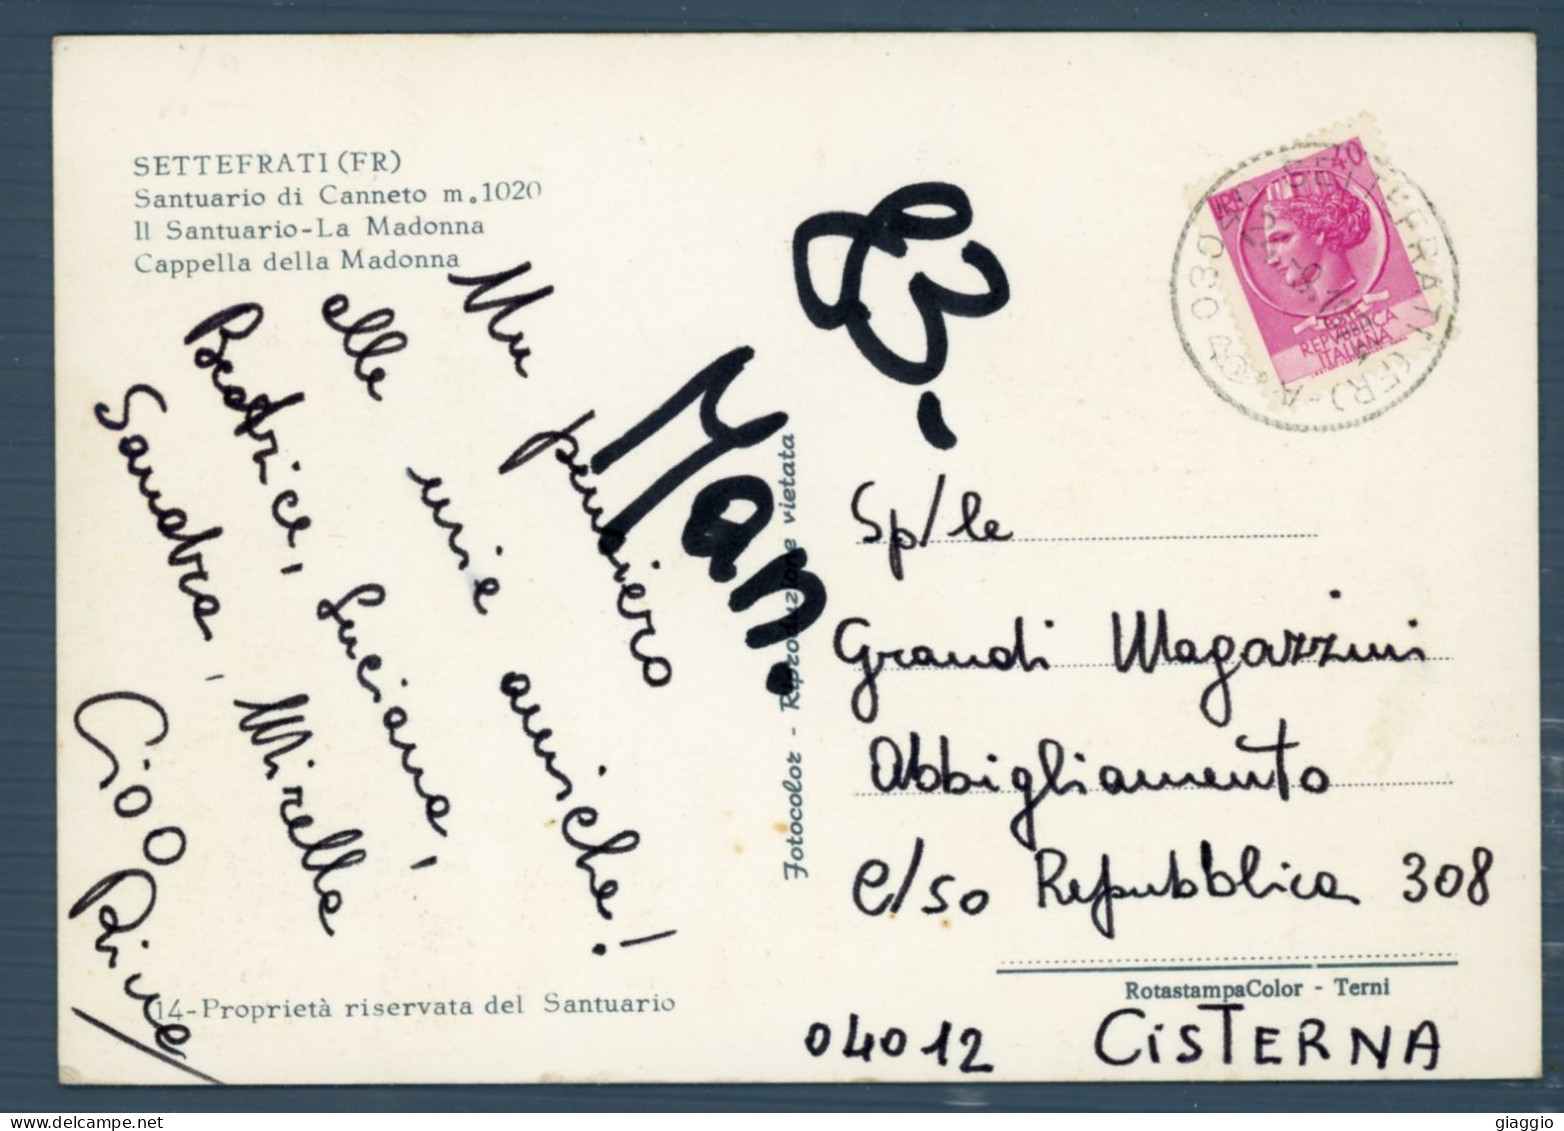 SETTEFRATI (FR)
Santuario di Canneto m. 1020
Il Santuario-La Madonna
Cappella della Madonna
Un pensiero
alle mie amiche!
Beatrice, Luciana,
Sandra, Mirella
Ciao
14-Proprietà riservata del Santuario
Fotocolor - Riproduzione vietata
83-
Man.
40
LIRE
POSTE
REPVBBLICA
ITALIANA
03040 SETTEFRATI (FR)-A
Sp/le
Grandi Magazzini
Abbigliamento
C/so Repubblica 308
RotastampaColor - Terni
04012 CISTERNA
giaggio